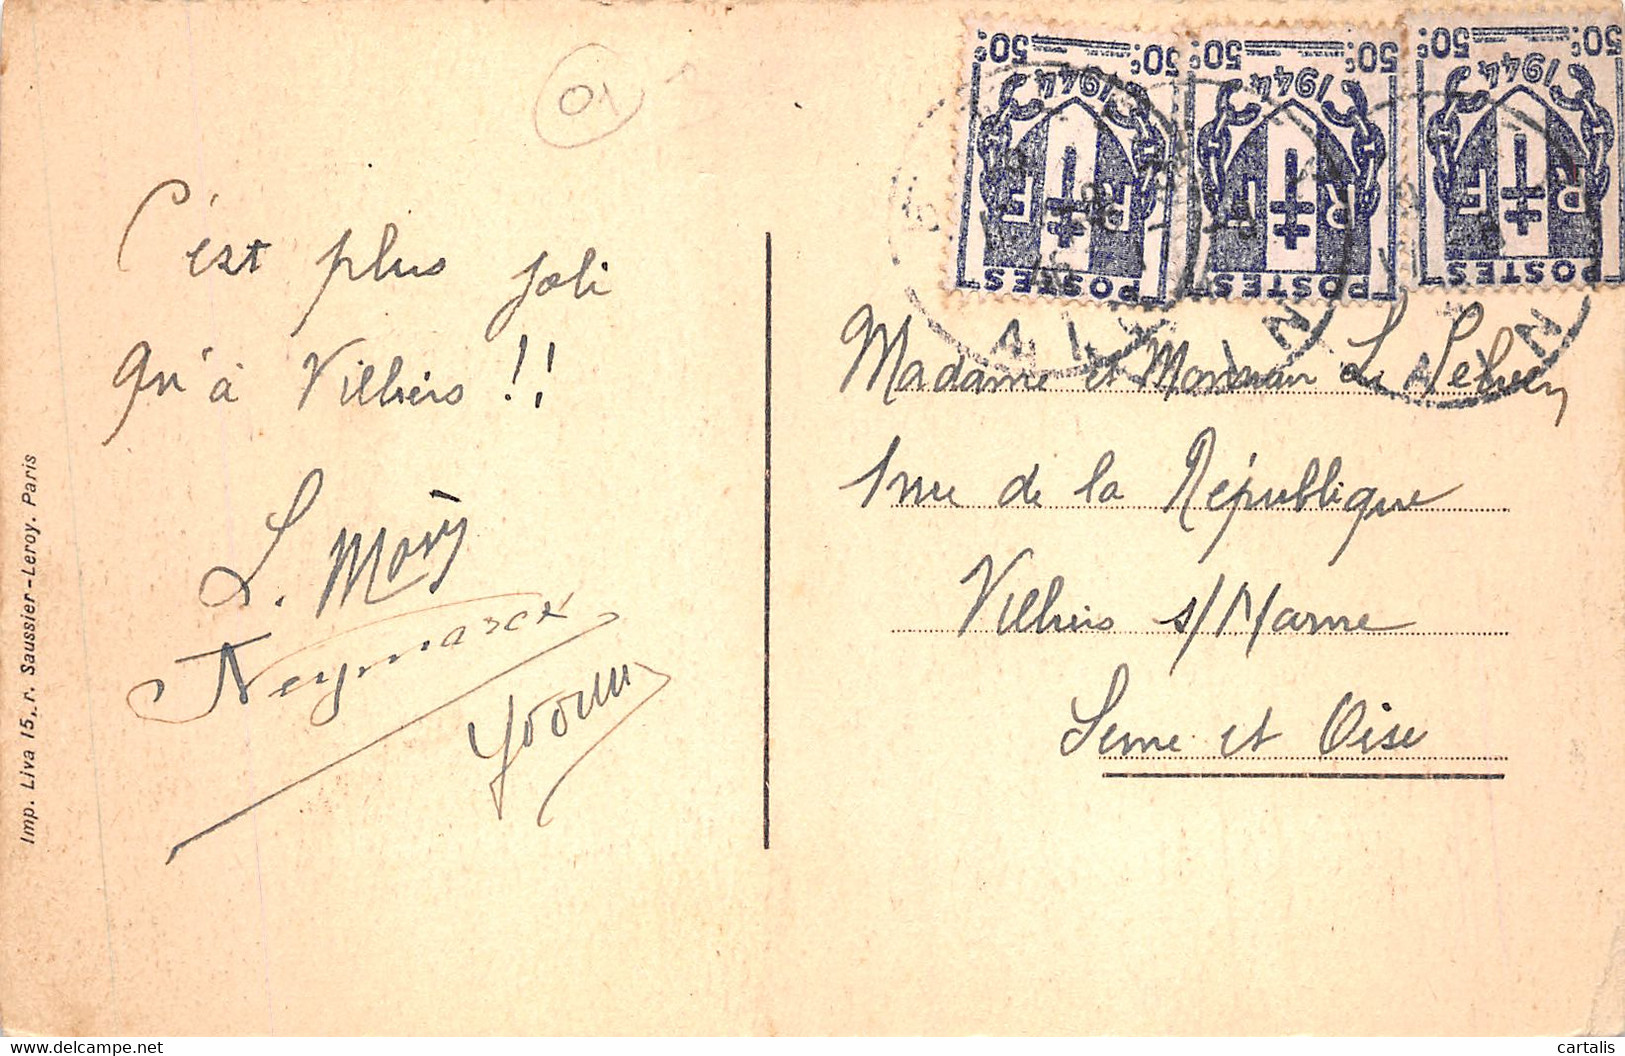 01
C'est plus joli
qu'à Villiers !!
L. Mory
Neymarck
Yvonne
Imp. Liva 15, r. Saussier-Leroy. Paris
50c 50c
1944
RF
POSTES
50c 50c
1944
RF
POSTES
50c 50c
1944
RF
POSTES
AIN
AIN
AIN
Madame et Monsieur Le
1 rue de la République
Villiers s/Marne
Seine et Oise
cartalis
www.delcampe.net